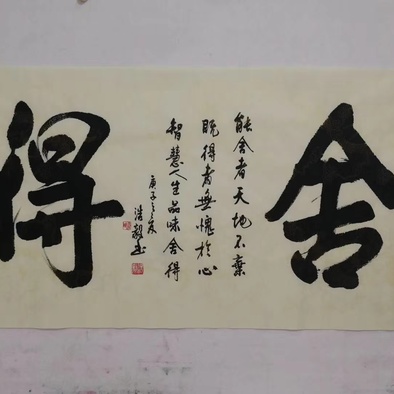 舍
能舍者天地不棄
既得者無愧於心
智慧人生品味舍得
庚子之夏
书
得